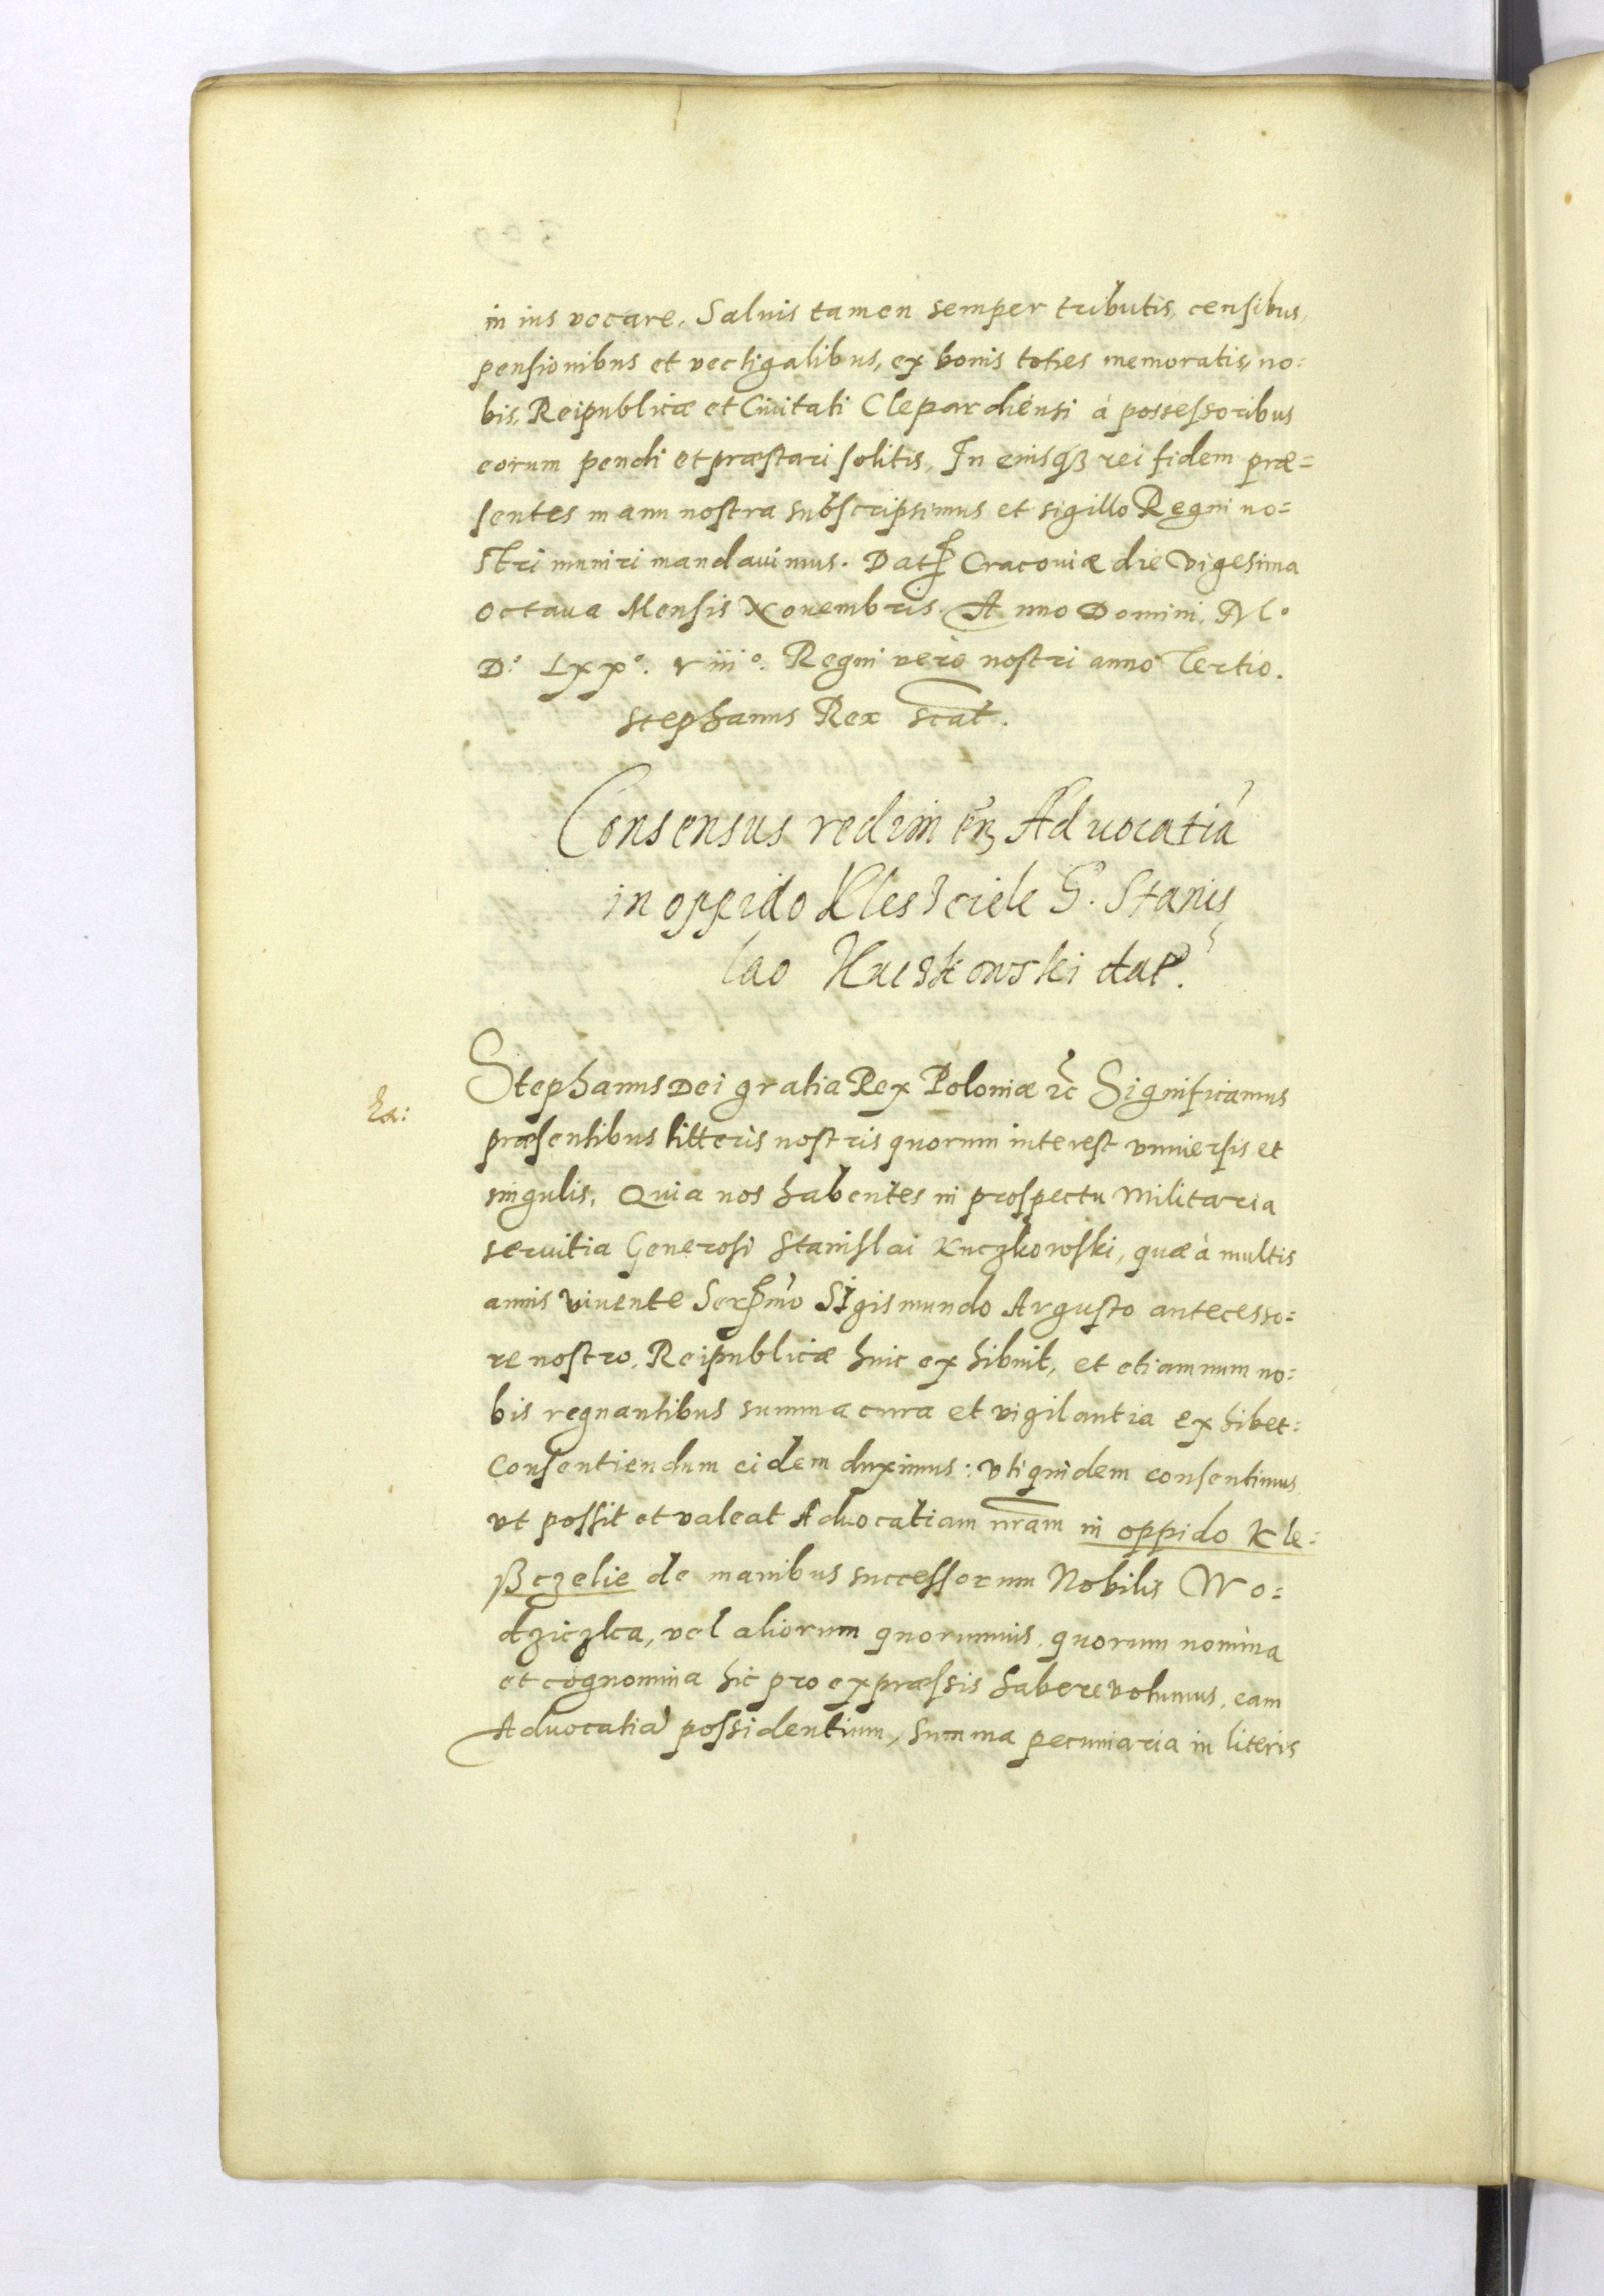 in ius vocare. Saluis tamen semper tributis, censibus,
pensionibus et vectigalibus, ex bonis toties memoratis, no=
bis, Reipublicæ et Ciuitati Clepardiensi à possessoribus
eorum pendi et præstari solitis, In eiusqꝫ rei fidem præ=
sentes manu nostra subscripsimus et sigillo Regni no=
stri muniri mandauimus. Dat Cracouiæ die Vigesima
octaua Mensis Nouembris. Anno Domini, M.o
D.o Lxxo. viiio. Regni verò nostri anno Tertio.
Stephanus Rex scat.
Consensus redimen Aduocatiã
in oppido Kleszciele G. Stanis
lao Kuczkowski dat.
Stephanus Dei gratia Rex Poloniæ etc Significamus
præsentibus litteris nostris quorum interest vniuersis et
singulis, Quia nos habentes in prospectu Militaria
seruitia Generosi Stanislai Kuczkowski, quæ à multis
annis viuente Sermo Sigismundo Augusto antecesso=
re nostro, Reipublicæ huic exhibuit, et etiamnum no=
bis regnantibus summa cura et vigilantia exhibet:
Consentiendum eidem duximus: vti quidem consentimus,
vt possit et valeat Aduocatiam nram in oppido Kle=
ßczelie de manibus successorum Nobilis Wo=
dziczka, vel aliorum quorumuis, quorum nomina
et cognomina hic pro expræssis habere volumus, eam
Aduocatiã possidentium, summa pecuniaria in literis